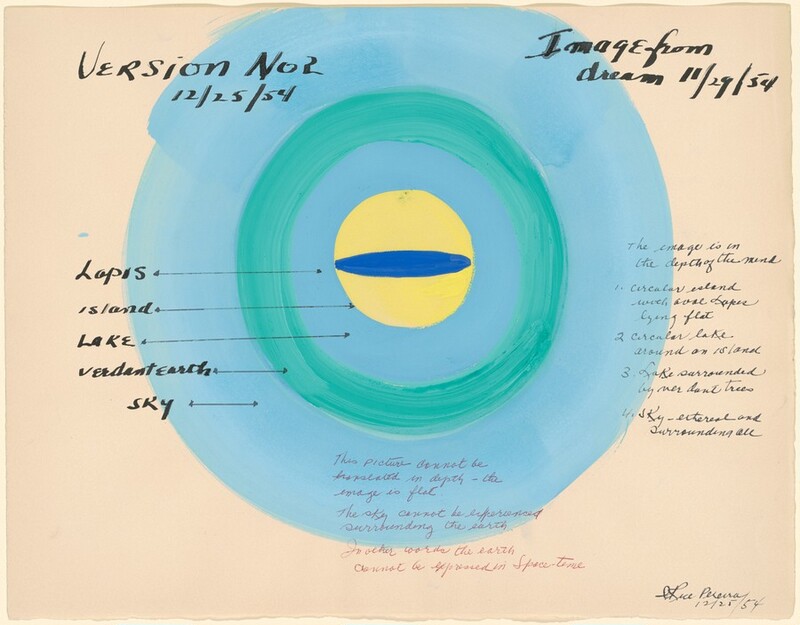 VERSION No2
12/25/54
Image from
dream 11/29/54
Lapis
island
LAKE
verdant earth
SKY
The image is in
the depth of the mind
1. circular island
with oval Lapis
lying flat
2 circular lake
around an island
3. Lake surrounded
by verdant trees
4. Sky - ethereal and
surrounding all
This picture cannot be
translated in depth - the
image is flat
The sky cannot be experienced
surrounding the earth.
In other words the earth
cannot be expressed in Space-time
I Rice Pereira
12/25/54